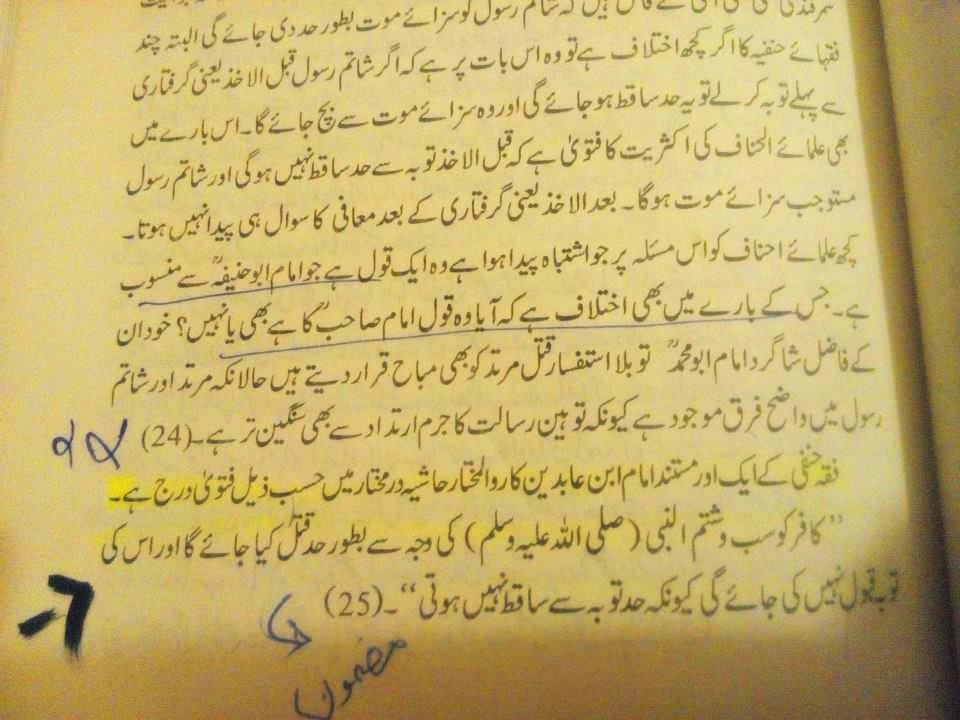 کے قائل ہیں کہ شاتم رسول کو سزائے موت بطور حد دی جائے گی البتہ چند
فقہائے حنفیہ کا اگر کچھ اختلاف ہے تو وہ اس بات پر ہے کہ اگر شاتم رسول قبل الاخذ یعنی گرفتاری
سے پہلے توبہ کر لے تو یہ حد ساقط ہو جائے گی اور وہ سزائے موت سے بچ جائے گا۔ اس بارے میں
بھی علمائے احناف کی اکثریت کا فتویٰ ہے کہ قبل الاخذ توبہ سے حد ساقط نہیں ہوگی اور شاتم رسول
مستوجب سزائے موت ہوگا۔ بعد الاخذ یعنی گرفتاری کے بعد معافی کا سوال ہی پیدا نہیں ہوتا۔
کچھ علمائے احناف کو اس مسئلہ پر جو اشتباہ پیدا ہوا ہے وہ ایک قول ہے جو امام ابو حنیفہؒ سے منسوب
ہے۔ جس کے بارے میں بھی اختلاف ہے کہ آیا وہ قول امام صاحبؒ کا ہے بھی یا نہیں؟ خود ان
کے فاضل شاگرد امام ابو محمدؒ تو بلا استفسار قتل مرتد کو بھی مباح قرار دیتے ہیں حالانکہ مرتد اور شاتم
رسول میں واضح فرق موجود ہے کیونکہ توہین رسالت کا جرم ارتداد سے بھی سنگین تر ہے۔ (24)
فقہ حنفی کے ایک اور مستند امام ابن عابدین کا روالمختار حاشیہ در مختار میں حسب ذیل فتویٰ درج ہے۔
”کافر کو سب وشتم النبی (صلی اللہ علیہ وسلم) کی وجہ سے بطور حد قتل کیا جائے گا اور اس کی
توبہ قبول نہیں کی جائے گی کیونکہ حد توبہ سے ساقط نہیں ہوتی“۔ (25)
مضمون